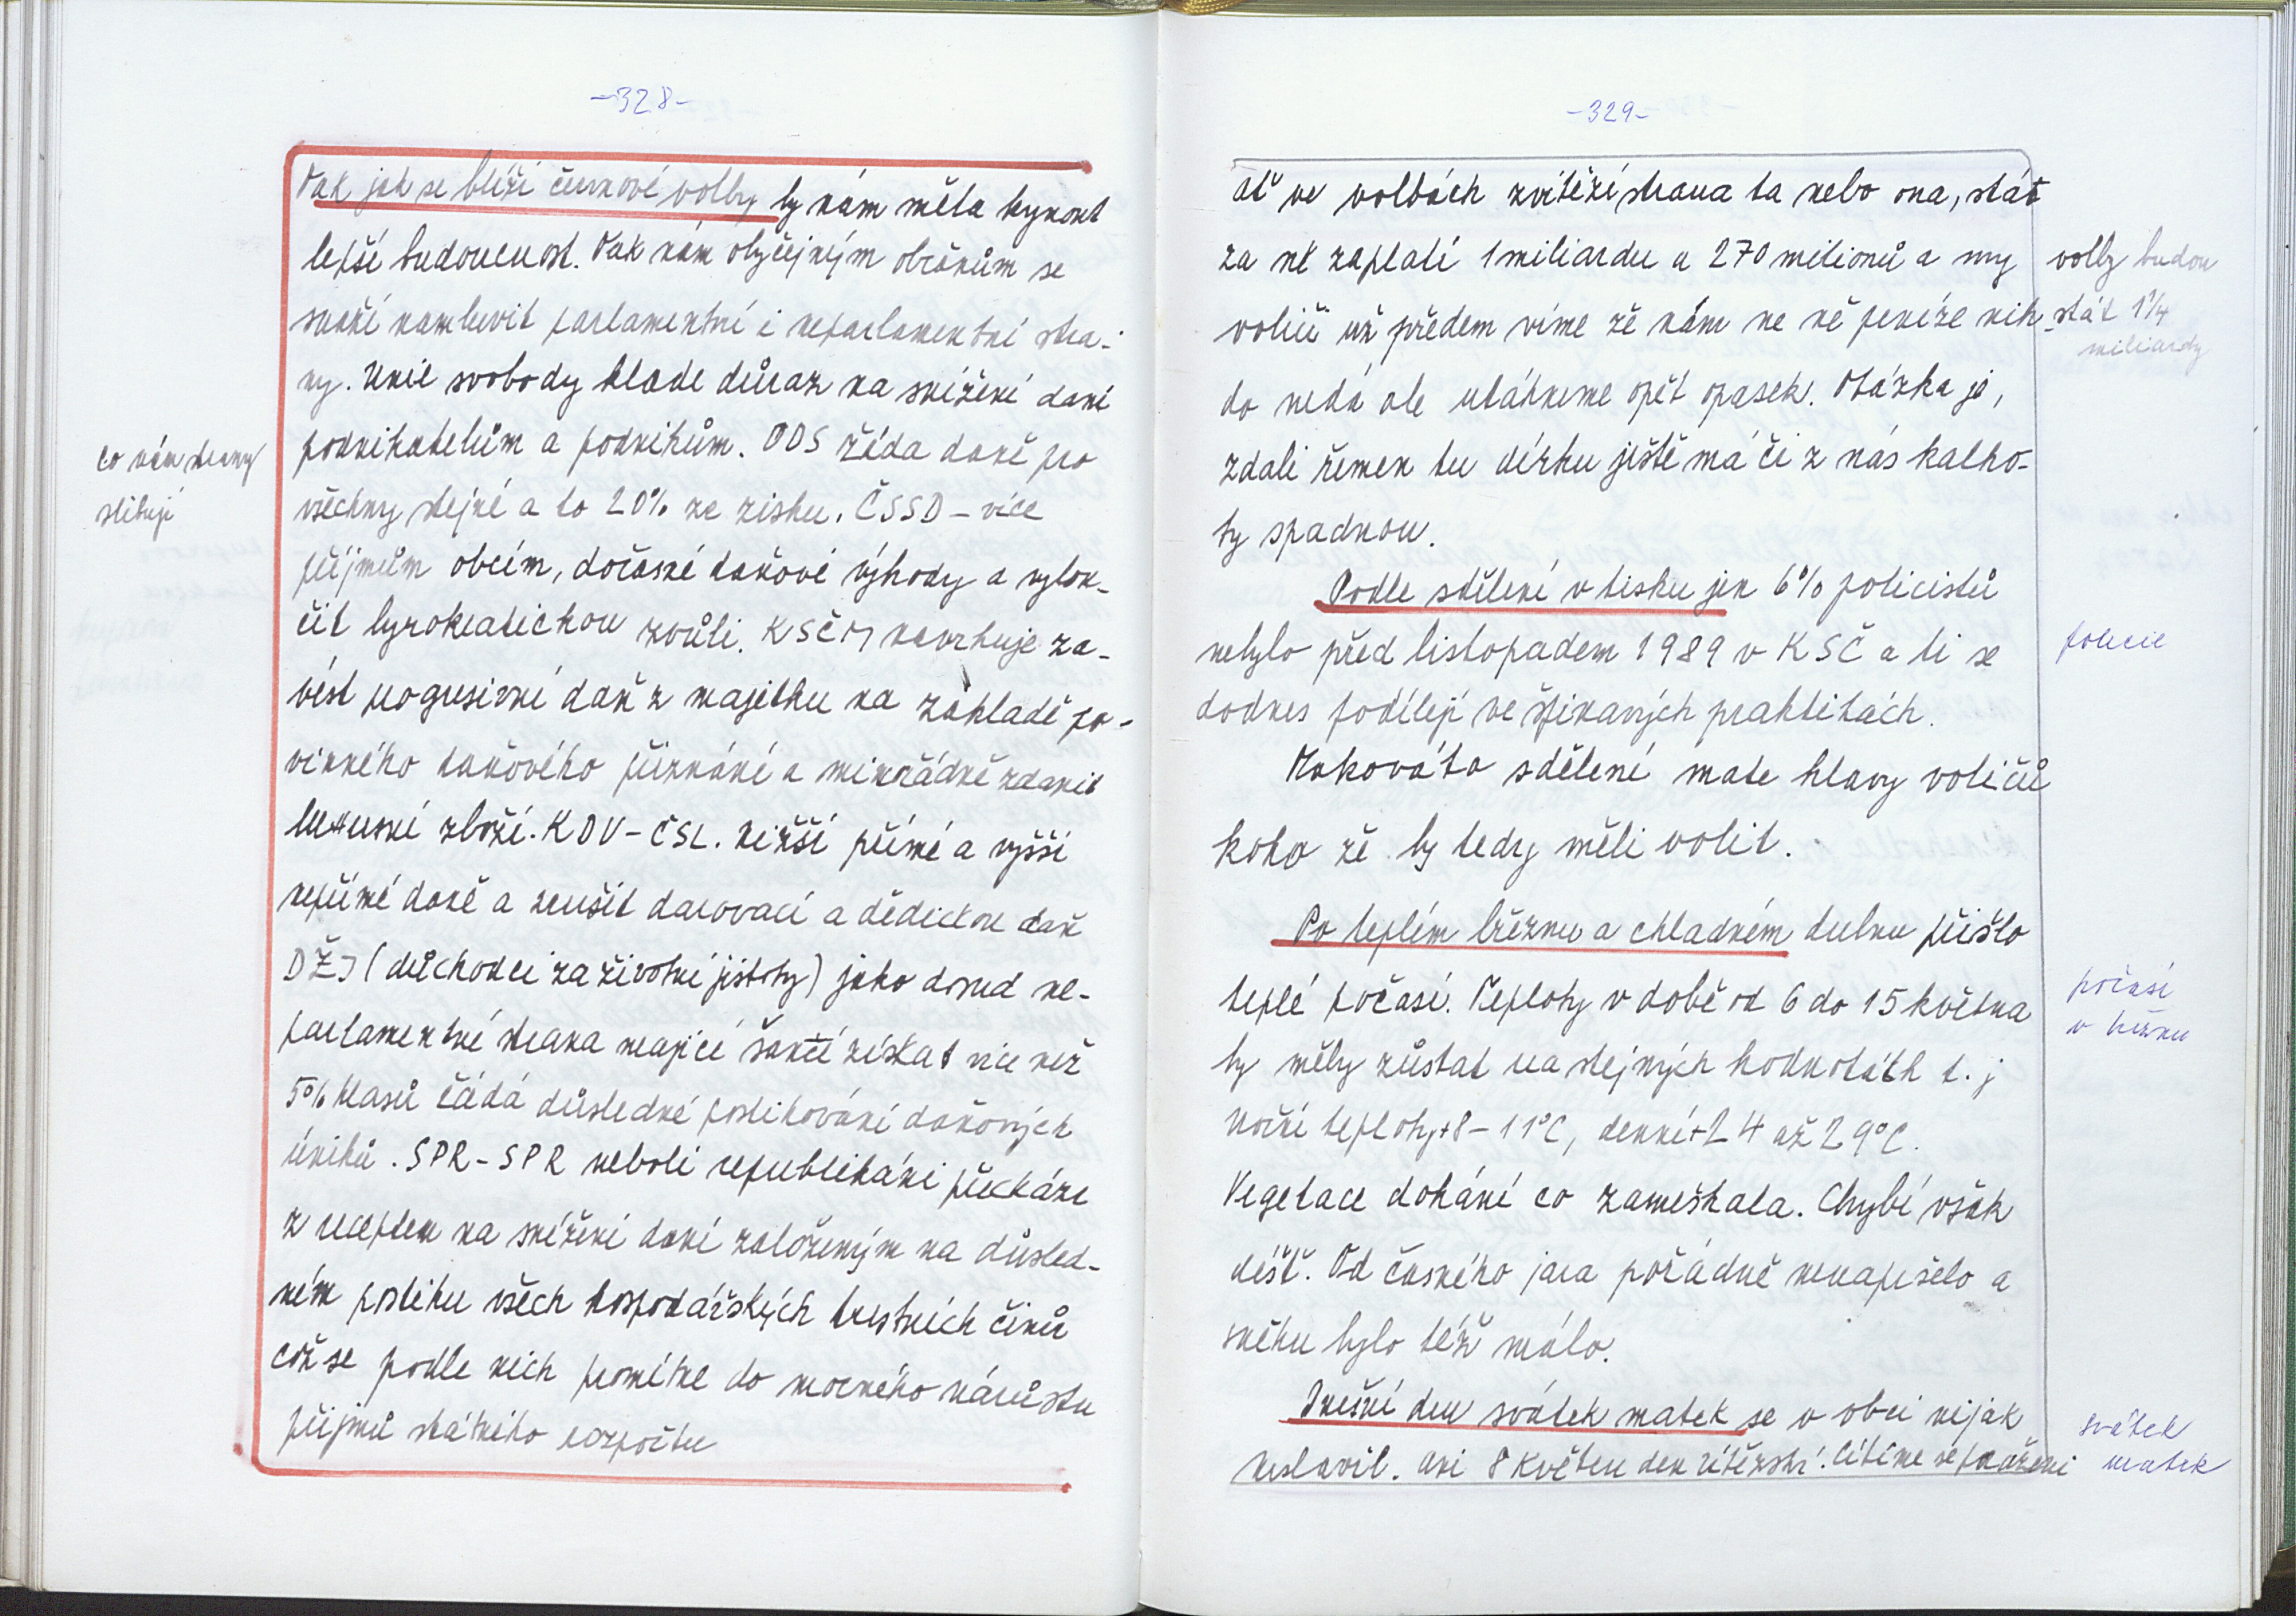 -328-
Tak jak se blíží červnové volby by nám měla kynout
lepší budoucnost. Tak nám obyčejným občanům se
snaží namluvit parlamentní i neparlamentní stra-
ny. Unie svobody klade důraz na snížení daní
podnikatelům a podnikům. ODS žádá daně pro
všechny stejné a to 20% ze zisku. ČSSD – více
příjmům obcím, dočasné daňové výhody a vylou-
čit byrokratickou zvůli. KSČM navrhuje za-
vést progresivní daň z majetku na základě po-
vinného daňového přiznání a mimořádně zdanit
luxusní zboží. KDU-ČSL. nižší přímé a vyšší
nepřímé daně a zrušit darovací a dědickou daň
DŽJ (důchodci za životní jistoty) jako dosud ne-
parlamentní strana mající šanci získat více než
5% hlasů žádá důsledné postihování daňových
úniků. SPR-SPR neboli republikáni
z receptem na snížení daní založeným na důsled-
ném postihu všech hospodářských trestních činů
což se podle nich promítne do mocného nárůstu
příjmů státního rozpočtu
co nám strany
slibují
-329-
ať ve volbách zvítězí strana ta nebo ona, stát
za ně zaplatí 1 miliardu a 270 milionů a my
voliči už předem víme zě nám ne ně peníze nik-
do nedá ale utáhneme opět opasek. Otázka je,
zdali řemen tu dírku ještě má či z nás kalho-
ty spadnou.
Podle sdělení v tisku jen 6% policistů
nebylo před listopadem 1989 v KSČ a ti se
dodnes podílejí ve špinavých praktikách.
Takováto sdělení mate hlavy voličů
koho zě by tedy měli volit.
Po teplém březnu a chladném dubnu přišlo
teplé počasí. Teploty v době od 6 do 15 května
by měly zůstat na stejných hodnotách t. j
noční teploty +8 – 11°C, denní +24 až 29°C.
Vegetace dohání co zameškala. Chybí však
déšť. Od časného jara pořádně nenapršelo a
sněhu bylo též málo.
Dnešní den svátek matek se v obci nijak
neslavil. ani 8 Květen den vítězství. Cítíme se
volby budou
stát 1¼
miliardy
policie
počasí
v březnu
svátek
matek